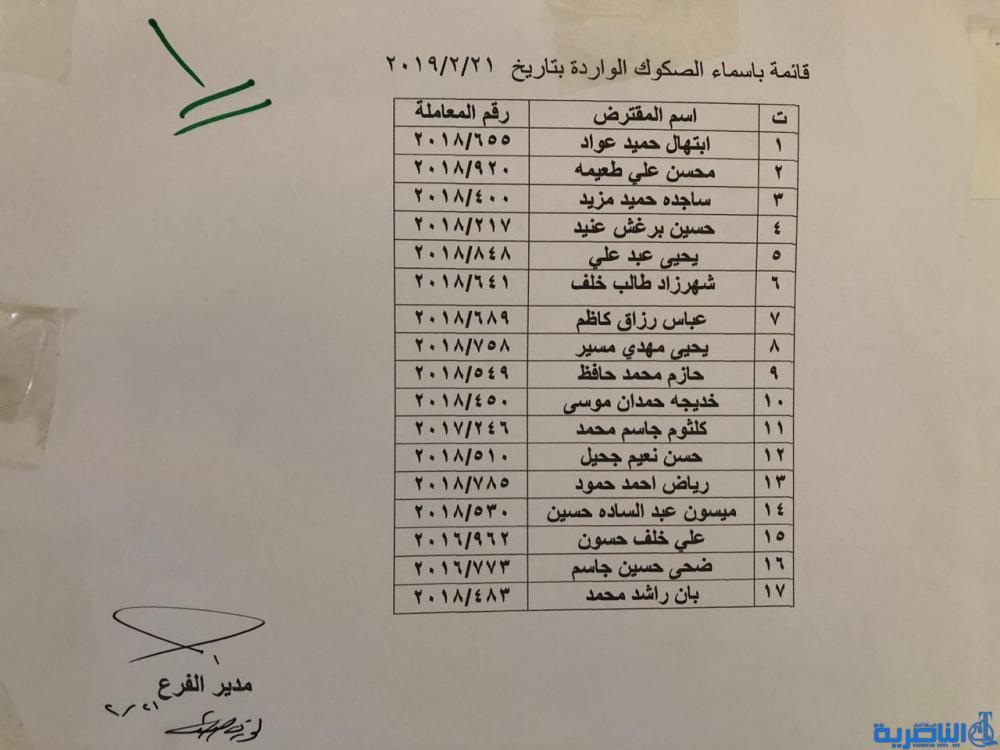 قائمة باسماء الصكوك الواردة بتاريخ ٢٠١٩/٢/٢١
ت اسم المقترض رقم المعاملة
١ ابتهال حميد عواد ٢٠١٨/٦٥٥
٢ محسن علي طعيمه ٢٠١٨/٩٢٠
٣ ساجده حميد مزيد ٢٠١٨/٤٠٠
٤ حسين برغش عنيد ٢٠١٨/٢١٧
٥ يحيى عبد علي ٢٠١٨/٨٤٨
٦ شهرزاد طالب خلف ٢٠١٨/٦٤١
٧ عباس رزاق كاظم ٢٠١٨/٦٨٩
٨ يحيى مهدي مسير ٢٠١٨/٧٥٨
٩ حازم محمد حافظ ٢٠١٨/٥٤٩
١٠ خديجه حمدان موسى ٢٠١٨/٤٥٠
١١ كلثوم جاسم محمد ٢٠١٧/٢٤٦
١٢ حسن نعيم جحيل ٢٠١٨/٥١٠
١٣ رياض احمد حمود ٢٠١٨/٧٨٥
١٤ ميسون عبد الساده حسين ٢٠١٨/٥٣٠
١٥ علي خلف حسون ٢٠١٦/٩٦٢
١٦ ضحى حسين جاسم ٢٠١٦/٧٧٣
١٧ بان راشد محمد ٢٠١٨/٤٨٣
مدير الفرع
٢/٢١
الناصرية